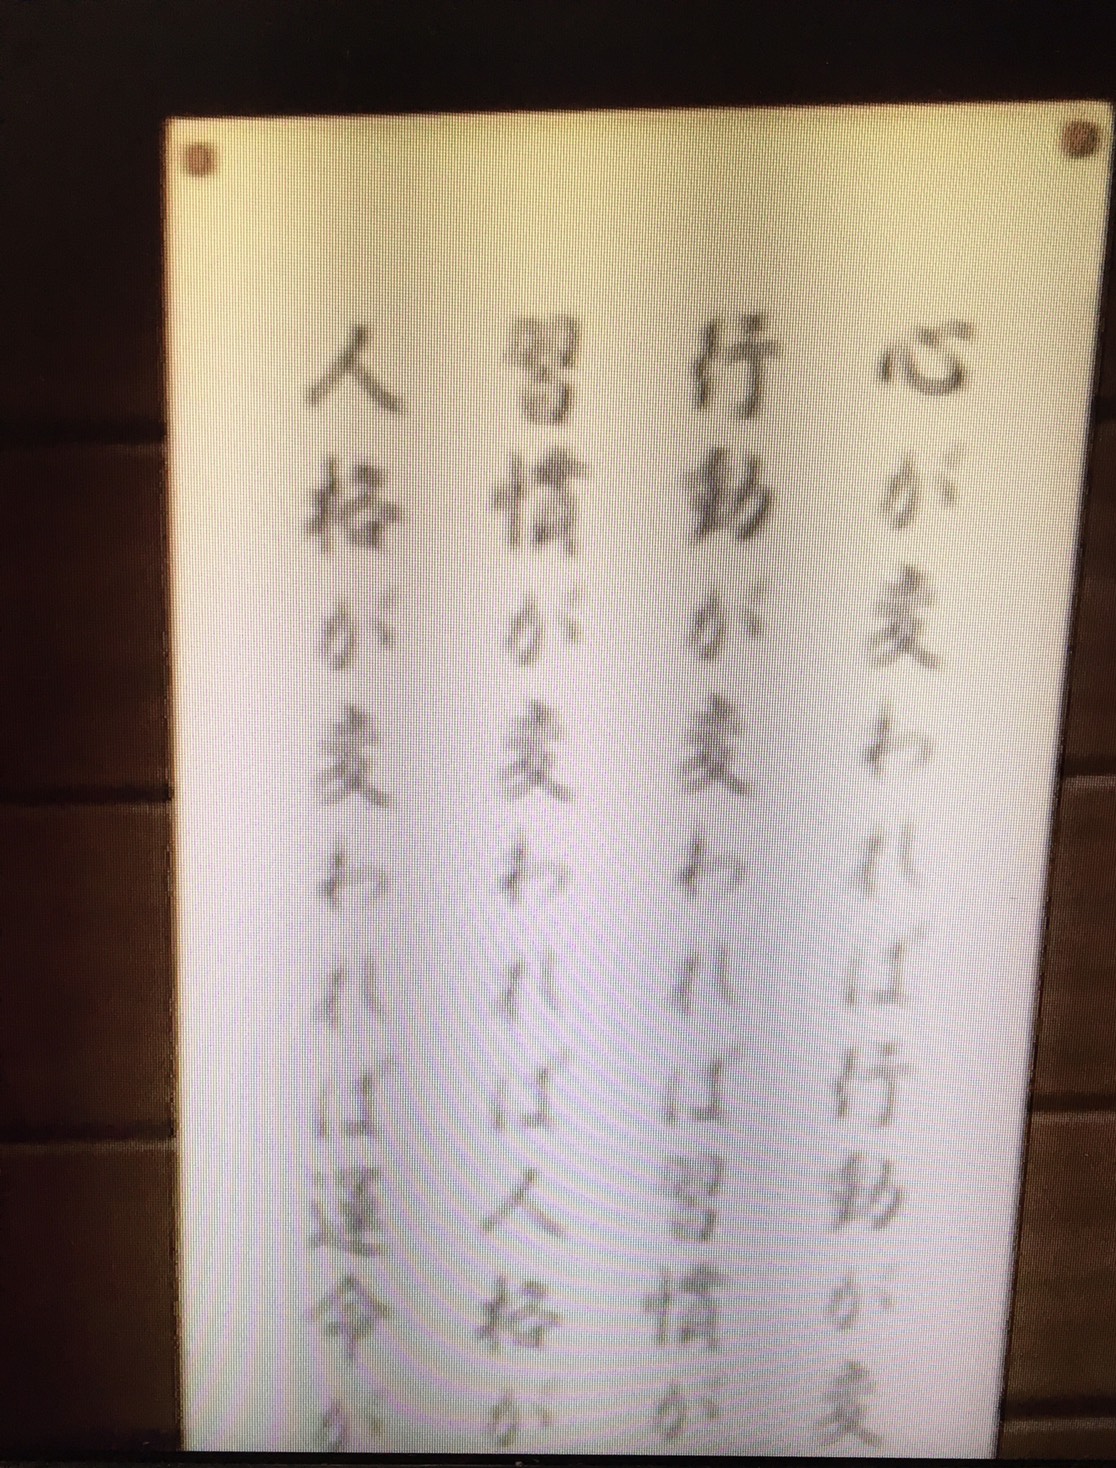 心が変われば行動が変
行動が変われば習慣が
習慣が変われば人格が
人格が変われば運命が